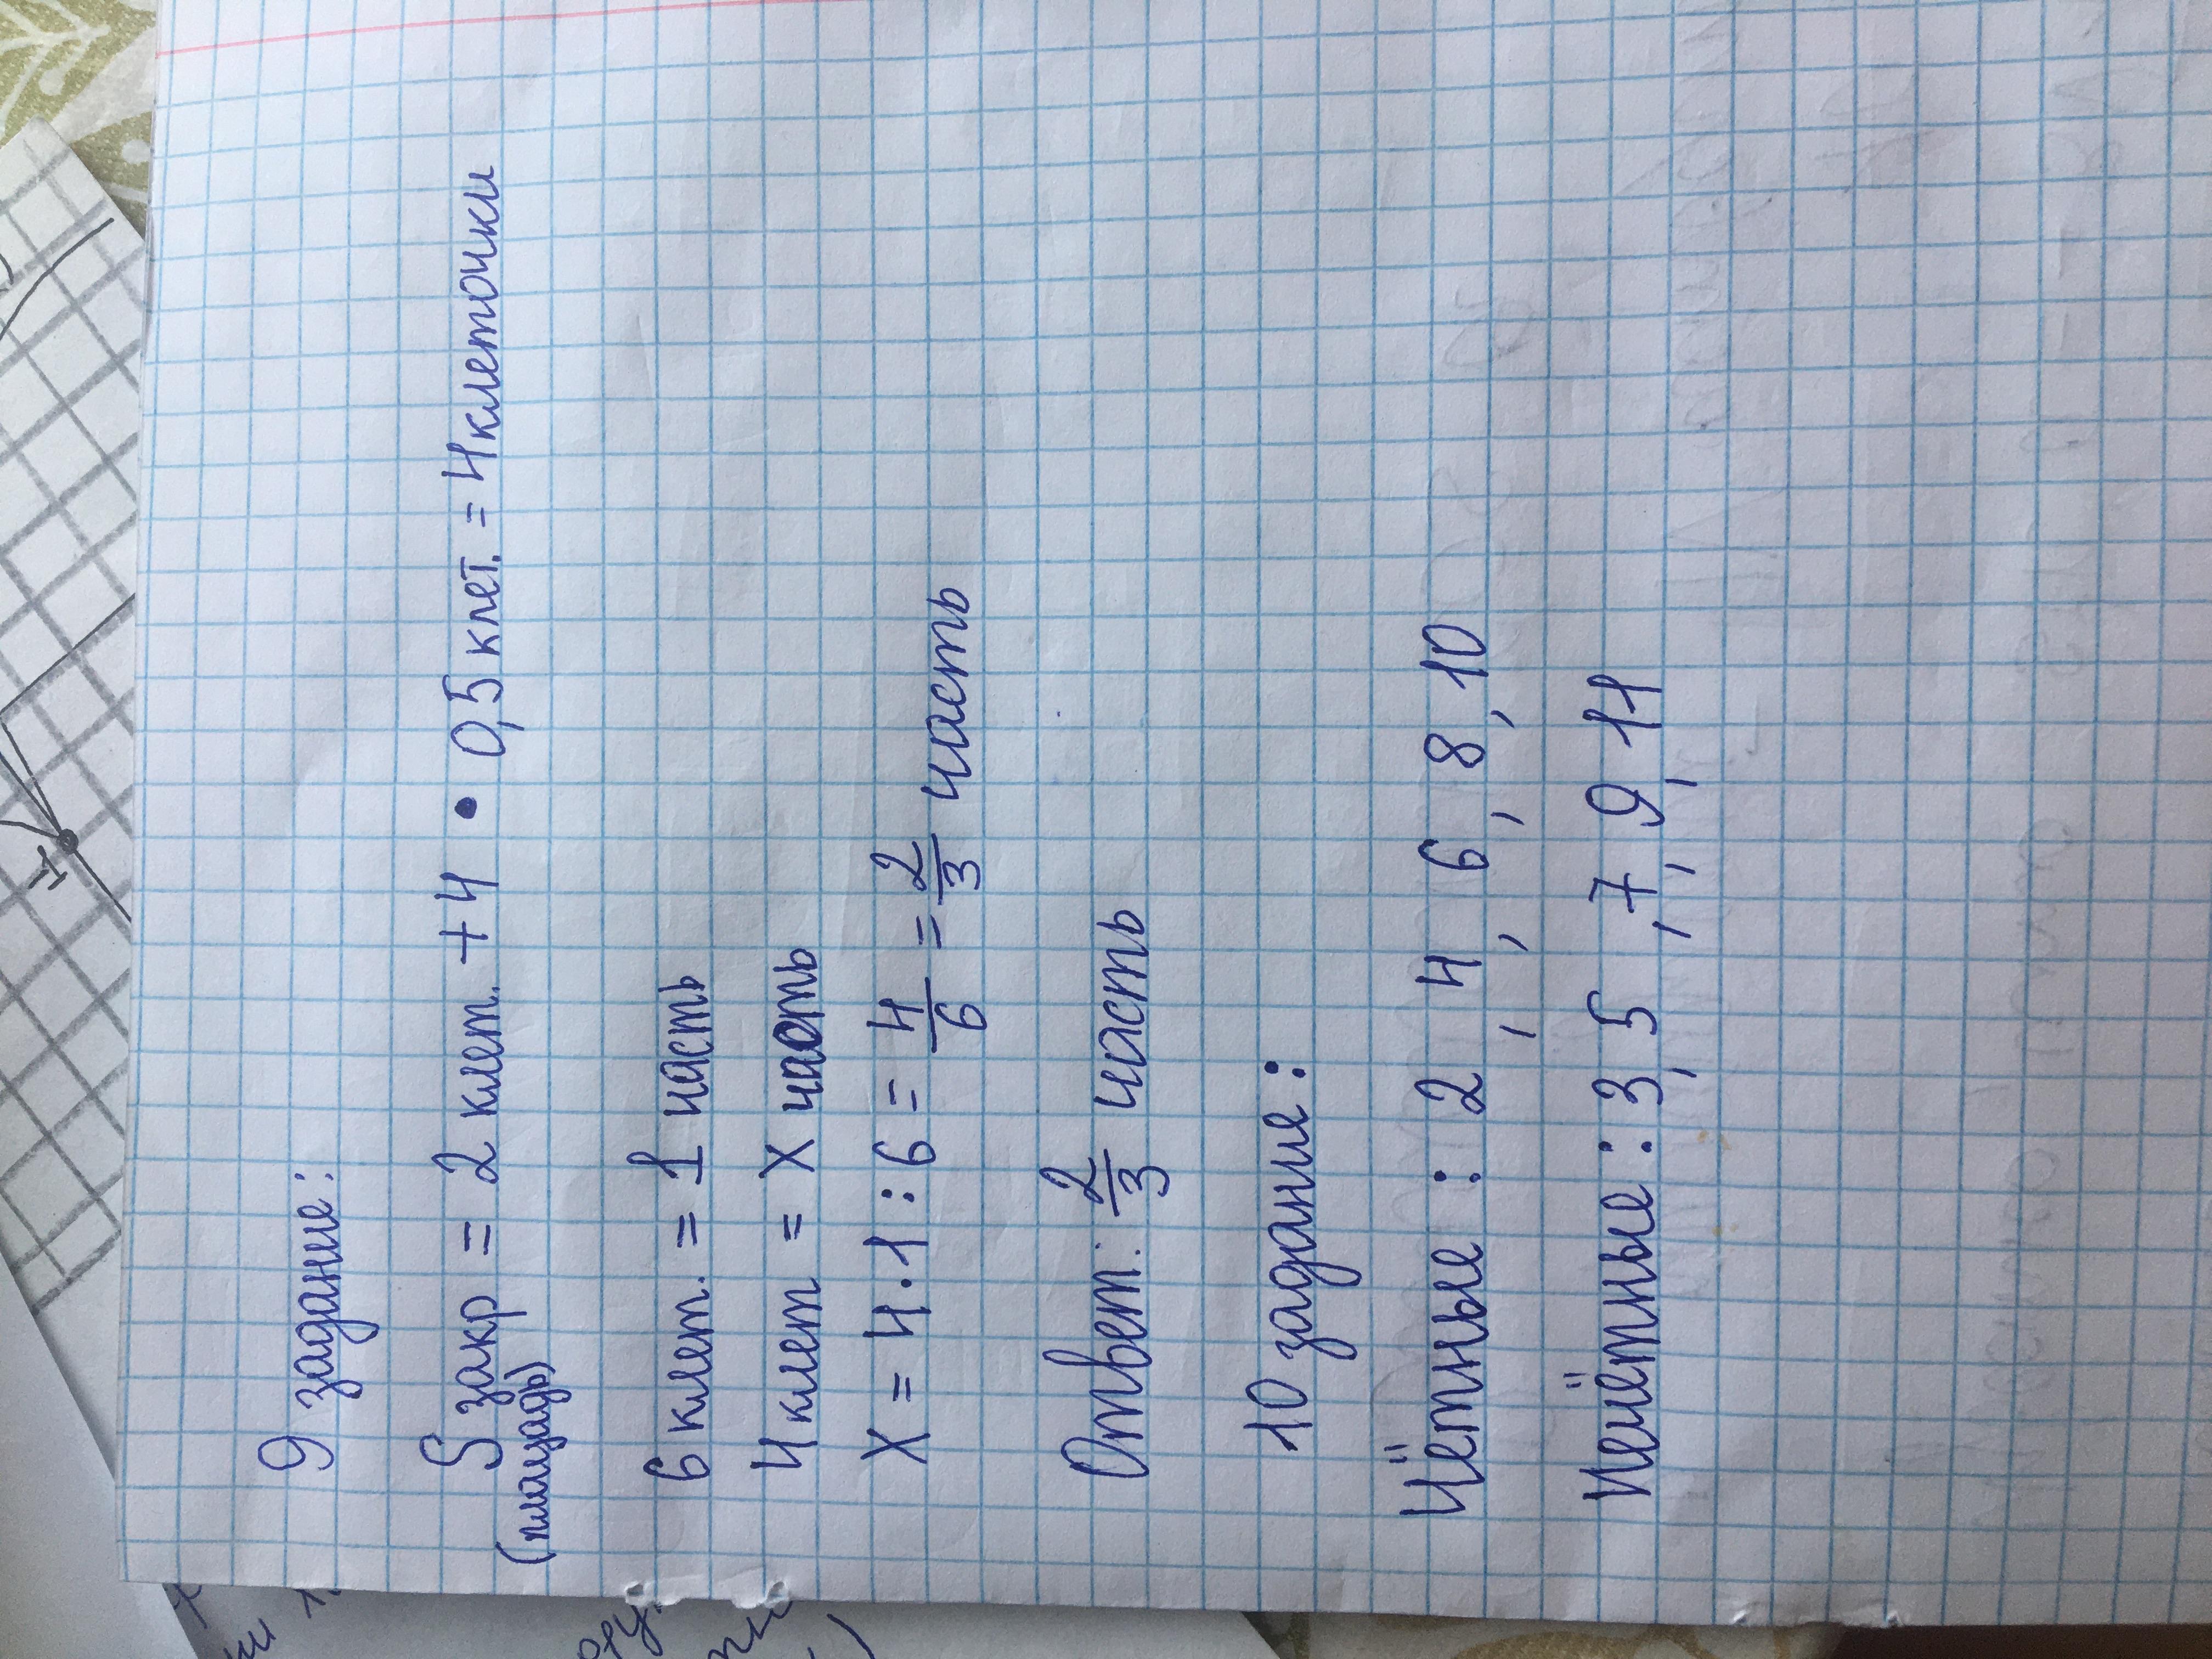 9 задание:
S закр = 2 клет. + 4 • 0,5 клет. = 4 клеточки
(площадь)
6 клет. = 1 часть
4 клет = X часть
X = 4 · 1 : 6 = 4/6 = 2/3 часть
Ответ: 2/3 часть
10 задание:
Чётные : 2, 4, 6, 8, 10
Нечётные : 3, 5, 7, 9, 11